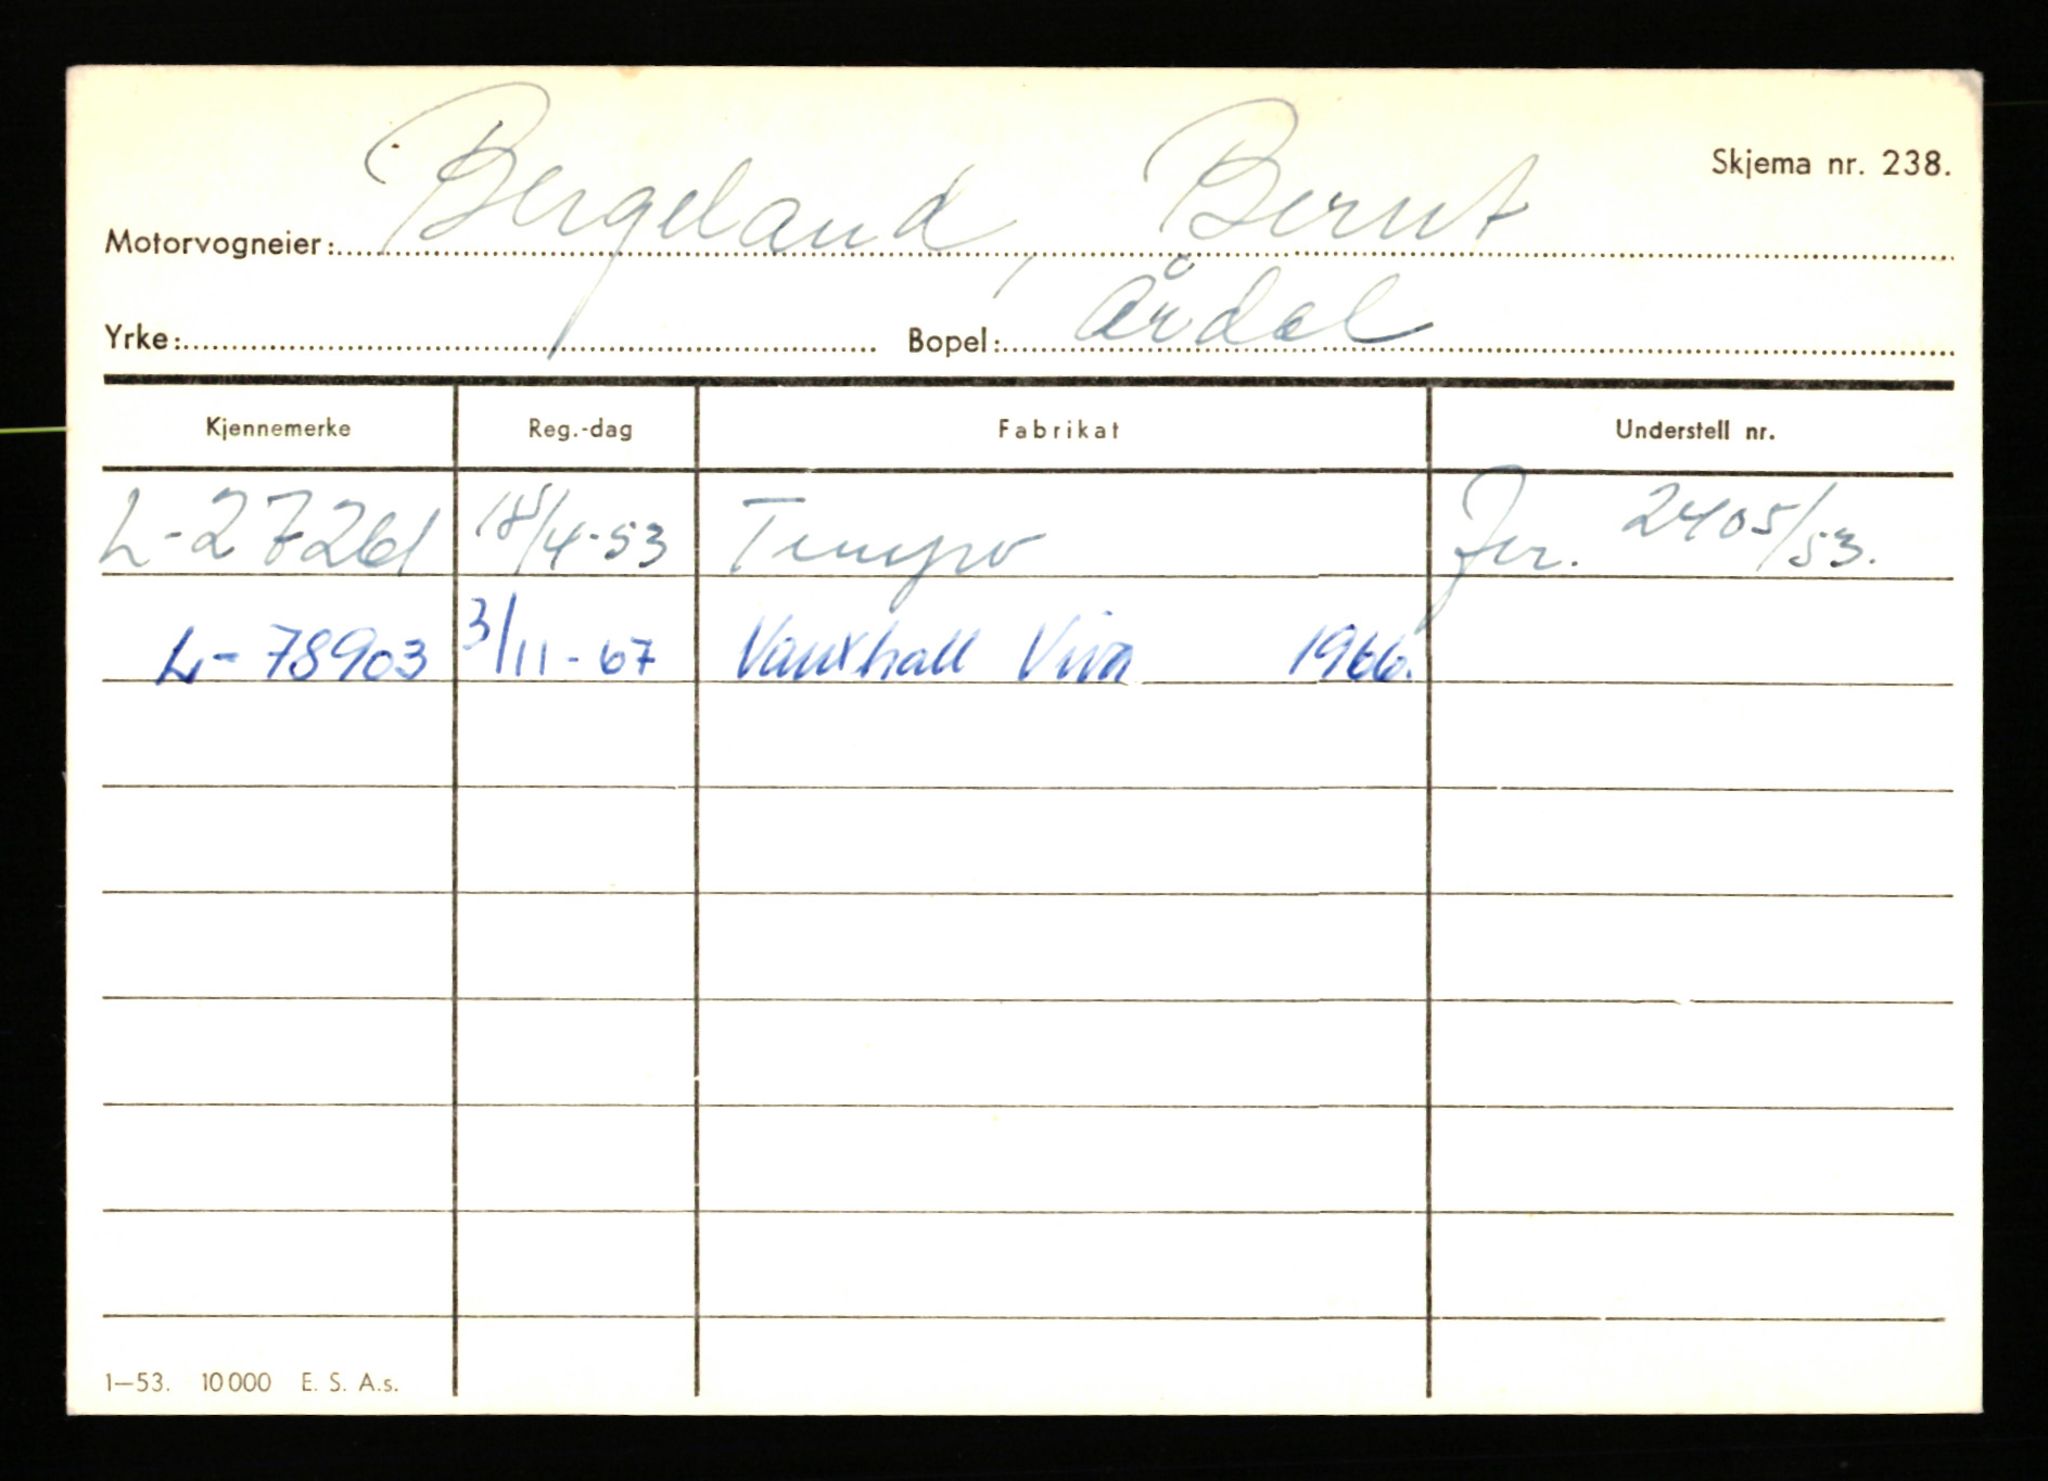 Skjema nr. 238.
Motorvogneier: Bergeland, Bernt
Yrke: Bopel: Årdal
Kjennemerke Reg.-dag Fabrikat Understell nr.
L-27261 18/4-53 Tempo Jnr. 2405/53.
L-78903 3/11-67 Vauxhall Viva 1966.
1—53. 10000 E. S. A.s.